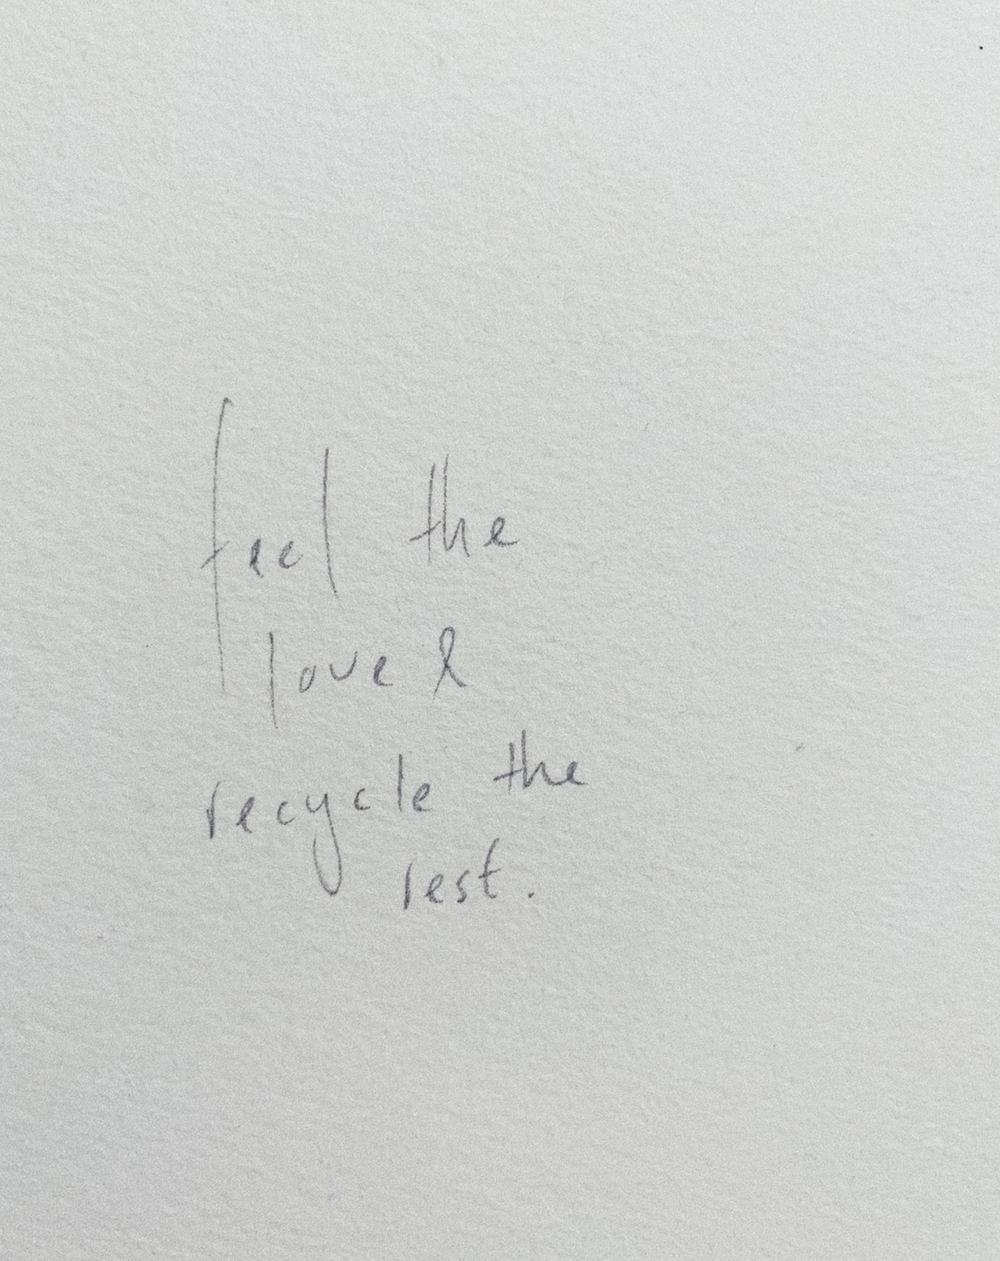 feel the
love &
recycle the
rest.